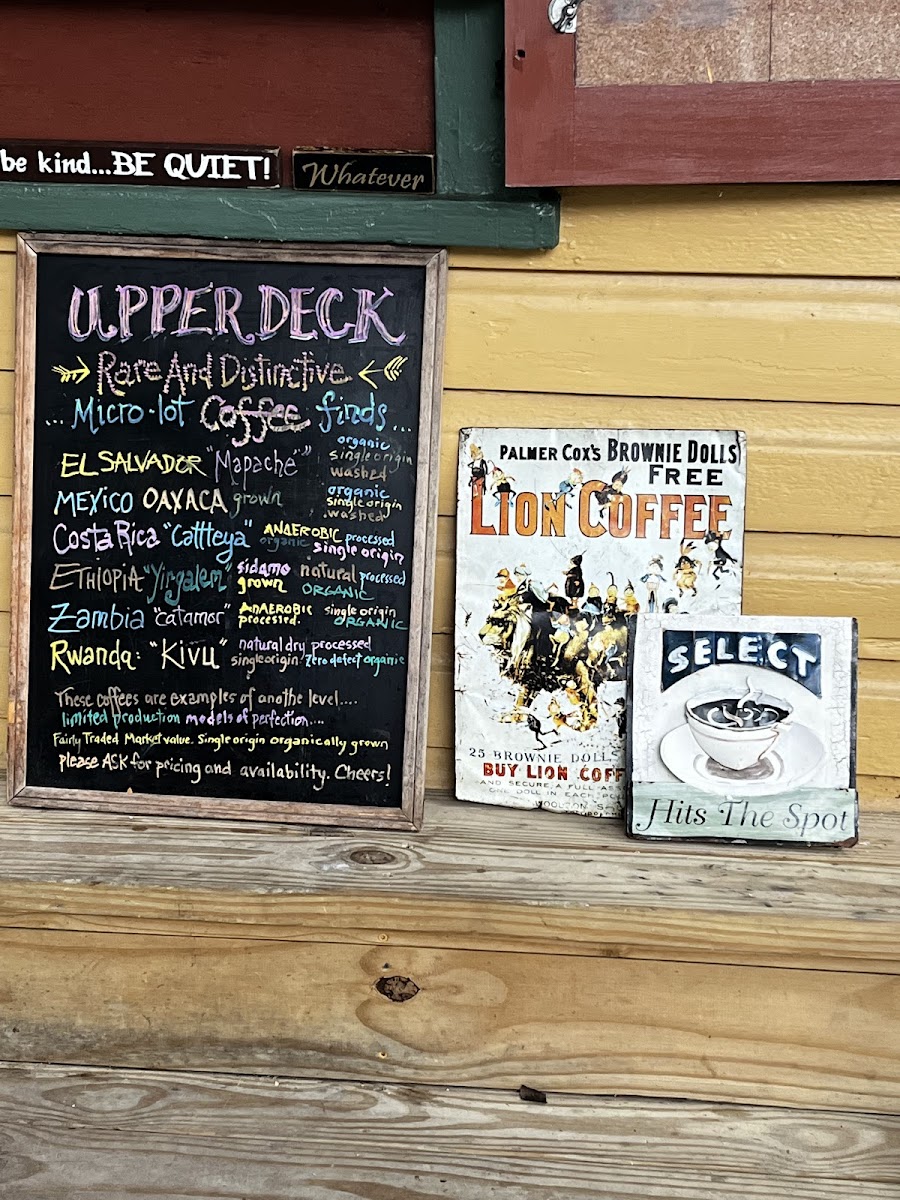 be kind...BE QUIET!
Whatever
UPPER DECK
Rare And Distinctive
... Micro-lot Coffee finds ...
EL SALVADOR "Mapache" organic single origin washed
MEXICO OAXACA grown organic single origin washed
Costa Rica "Cattleya" ANAEROBIC processed organic single origin
ETHIOPIA "Yirgalem" sidamo grown natural processed ORGANIC
Zambia "catamor" ANAEROBIC processed. single origin ORGANIC
Rwanda: "Kivu" natural dry processed single origin zero defect organic
These coffees are examples of anothe level....
limited production models of perfection....
Fairly Traded Market value. Single origin organically grown
please ASK for pricing and availability. Cheers!
PALMER COX'S BROWNIE DOLLS
FREE
LION COFFEE
25 BROWNIE DOLLS
BUY LION COFF
AND SECURE A FULL
ONE DOLL IN EACH
WOOLSON S
SELECT
Hits The Spot